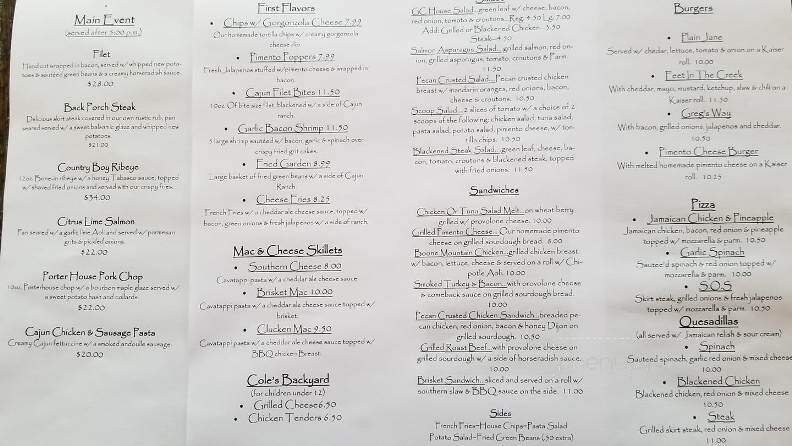 Main Event
(served after 5:00 p.m.)
Filet
Hand cut wrapped in bacon, served w/ whipped new pota-
toes & sauteed green beans & a creamy horseradish sauce.
$28.00
Back Porch Steak
Delicious skirt steak covered in our own rustic rub, pan
seared served w/ a sweet balsamic glaze and whipped new
potatoes.
$21.00
Country Boy Ribeye
12oz. Bone-in ribeye w/ honey Tabasco sauce, topped
w/ shaved fried onions and served with our crispy fries.
$34.00
Citrus Lime Salmon
Pan seared w/ a garlic lime Aoli and served w/ parmesan
grits & pickled onions.
$22.00
Porter House Pork Chop
10oz. Porterhouse chop w/ a bourbon maple glaze served w/
a sweet potato hash and collards.
$22.00
Cajun Chicken & Sausage Pasta
Creamy Cajun fettuccine w/ a smoked andouille sausage.
$20.00
First Flavors
• Chips w/ Gorgonzola Cheese 7.99
Our homemade tortilla chips w/ creamy gorgonzola
cheese dip
• Pimento Poppers 7.99
Fresh Jalapenos stuffed w/ pimento cheese & wrapped in
bacon.
• Cajun Filet Bites 11.50
10oz. Of bite size filet blackened w/ a side of Cajun
ranch.
• Garlic Bacon Shrimp 11.50
5 large shrimp sautéed w/ bacon, garlic & spinach over
crispy fried grit cakes.
• Fried Garden 8.99
Large basket of fried green beans w/ a side of Cajun
Ranch
• Cheese Fries 8.25
French Fries w/ a cheddar ale cheese sauce, topped w/
bacon, green onions & fresh jalapenos w/ a side of ranch.
Mac & Cheese Skillets
• Southern Cheese 8.00
Cavatappi pasta w/ a cheddar ale cheese sauce
• Brisket Mac 10.00
Cavatappi pasta w/ a cheddar ale cheese sauce topped w/
brisket.
• Clucken Mac 9.50
Cavatappi pasta w/ a cheddar ale cheese sauce topped w/
BBQ chicken Breast.
Cole's Backyard
(for children under 12)
• Grilled Cheese 6.50
• Chicken Tenders 6.50
GC House Salad...green leaf w/ cheese, bacon,
red onion, tomato & croutons...Reg. 4.50 Lg. 7.00
Add: Grilled or Blackened Chicken—3.50
Steak—4.50
Salmon Asparagus Salad...grilled salmon, red on-
ion, grilled asparagus, tomato, croutons & Parm.
11.50
Pecan Crusted Salad...Pecan crusted chicken
breast w/ mandarin oranges, red onions, bacon,
cheese & croutons. 10.50
Scoop Salad...2 slices of tomato w/ a choice of 2
scoops of the following: chicken salad, tuna salad,
pasta salad, potato salad, pimento cheese, w/ tor-
tilla chips. 10.50
Blackened Steak Salad...green leaf, cheese, ba-
con, tomato, croutons & blackened steak, topped
with fried onions. 11.50
Sandwiches
Chicken Or Tuna Salad Melt...on wheat berry
grilled w/ provolone cheese. 10.00
Grilled Pimento Cheese... Our homemade pimento
cheese on grilled sourdough bread. 8.00
Boone Mountain Chicken...grilled chicken breast
w/ bacon, lettuce, cheese & served on a roll w/ Chi-
potle Aoli. 10.00
Smoked Turkey & Bacon...with provolone cheese
& comeback sauce on grilled sourdough bread.
10.00
Pecan Crusted Chicken Sandwich...breaded pe-
can chicken, red onion, bacon & honey Dijon on
grilled sourdough. 10.50
Grilled Roast Beef...with provolone cheese on
grilled sourdough w/ a side of horseradish sauce.
10.00
Brisket Sandwich...sliced and served on a roll w/
southern slaw & BBQ sauce on the side. 11.00
Sides
French Fries~House Chips~Pasta Salad
Potato Salad~Fried Green Beans (.50 extra)
Burgers
• Plain Jane
Served w/ chedar, lettuce, tomato & onion on a Kaiser
roll. 10.00
• Feet In The Creek
With cheddar, mayo, mustard, ketchup, slaw & chili on a
Kaiser roll. 11.50
• Greg's Way
With bacon, grilled onions, jalapenos and cheddar.
10.50
• Pimento Cheese Burger
With melted homemade pimento cheese on a Kaiser
roll. 10.25
Pizza
• Jamaican Chicken & Pineapple
Jamaican chicken, bacon, red onion & pineapple
topped w/ mozzarella & parm. 10.50
• Garlic Spinach
Sautee'd spinach & red onion topped w/
mozzarella & parm. 10.00
• S.O.S
Skirt steak, grilled onions & fresh jalapenos
topped w/ mozzarella & parm. 10.50
Quesadillas
(all served w/ Jamaican relish & sour cream)
• Spinach
Sauteed spinach, garlic red onion & mixed cheese
10.00
• Blackened Chicken
Blackened chicken, red onion & mixed cheese
10.50
• Steak
Grilled skirt steak, red onion & mixed cheese
11.00